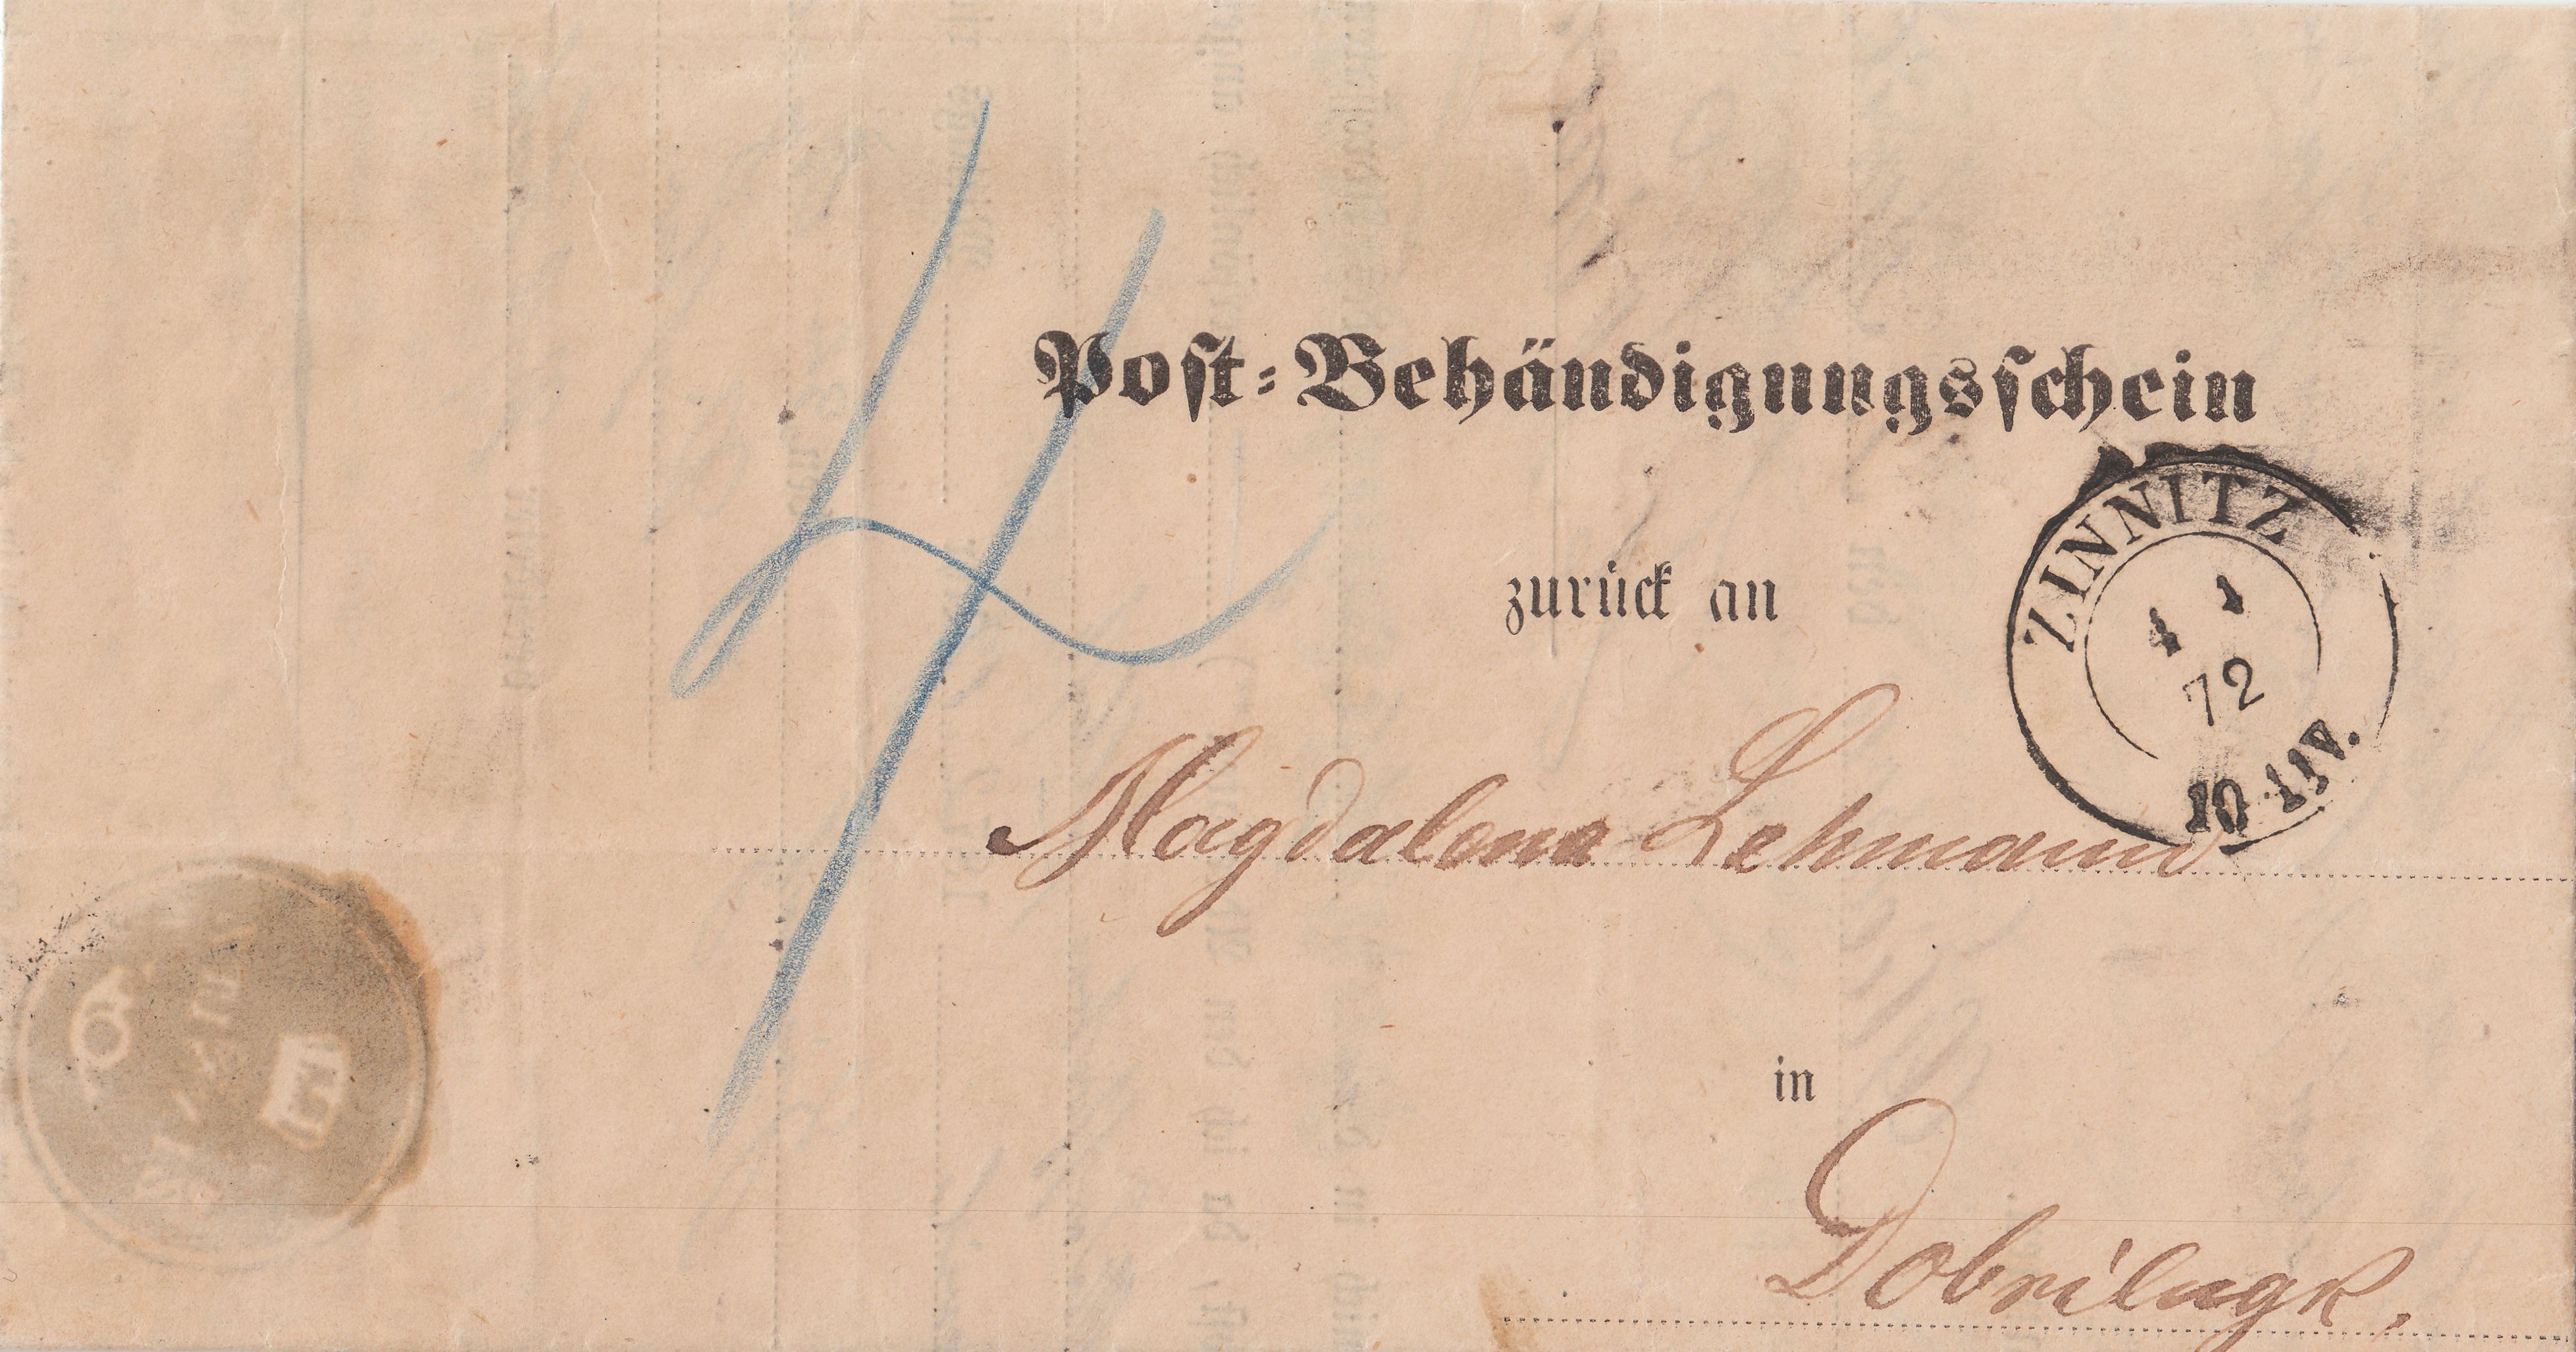 Post-Behändigungsschein
zurück an
ZINNITZ
4 1
72
10 11 V.
Magdalena Lehmann
in
Dobrilugk.
4